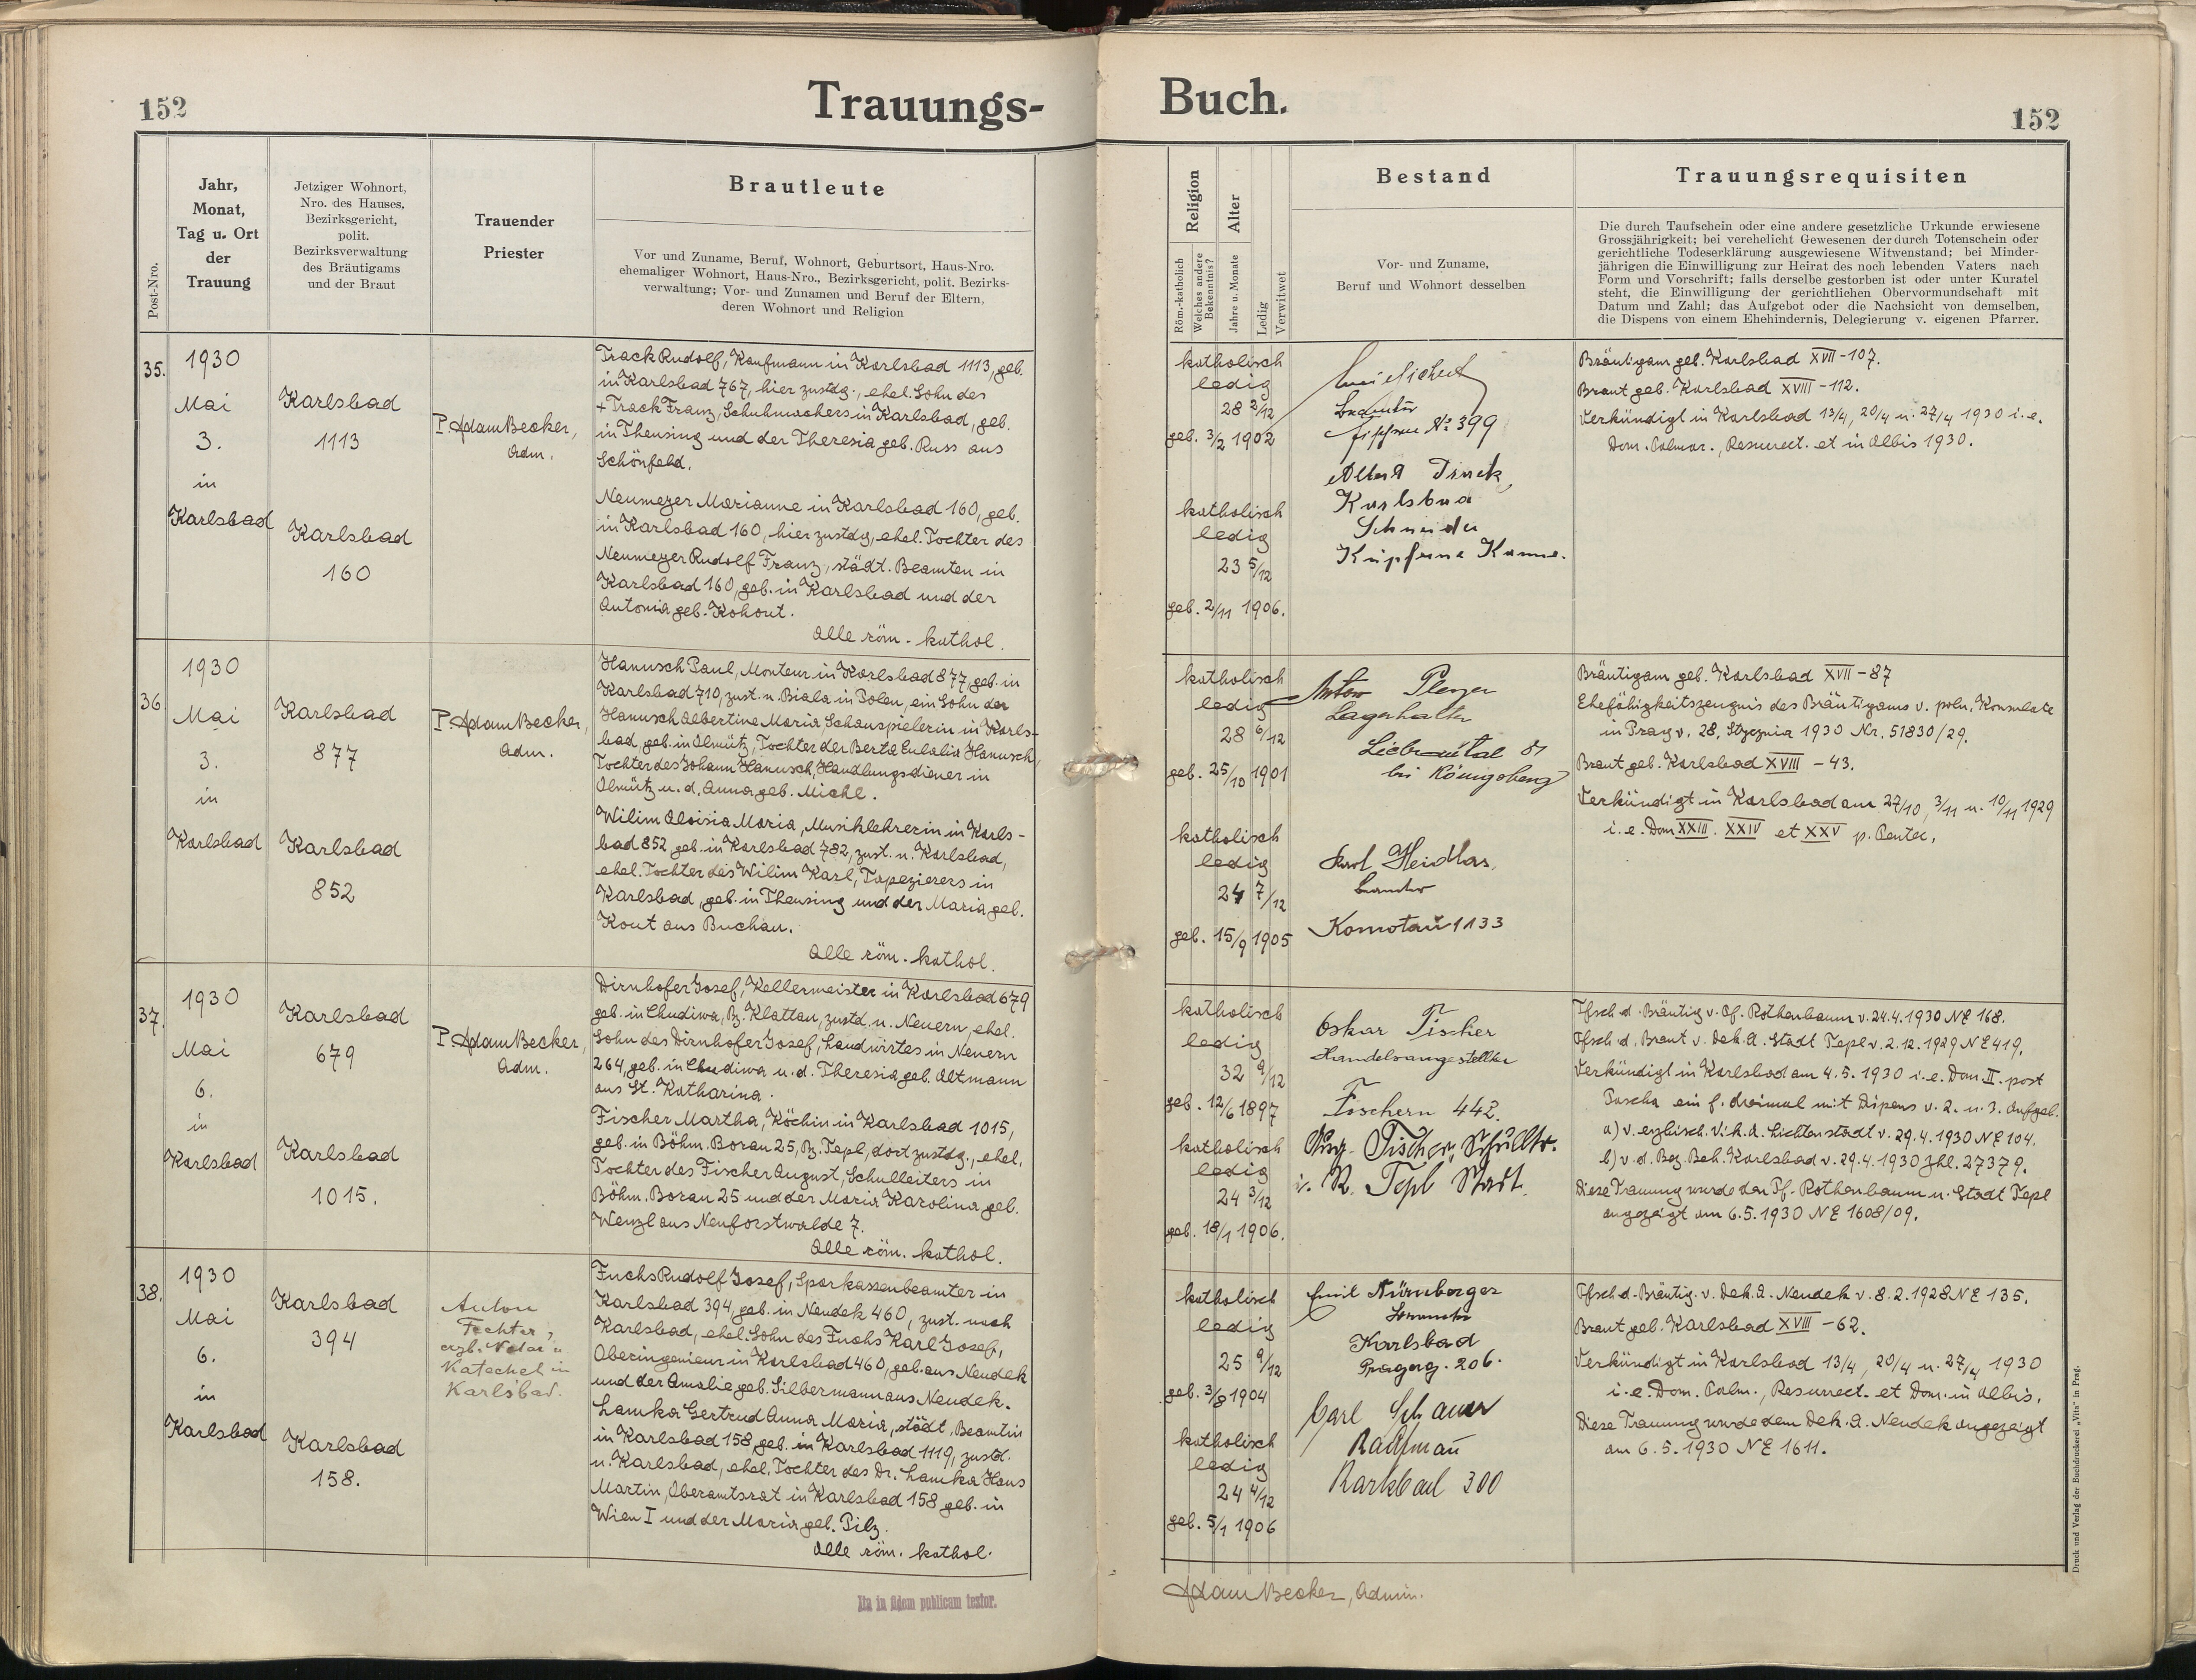 152
Trauungs-
Buch.
152
Post-Nro.
Jahr,
Monat,
Tag u. Ort
der
Trauung
Jetziger Wohnort,
Nro. des Hauses,
Bezirksgericht,
polit.
Bezirksverwaltung
des Bräutigams
und der Braut
Trauender
Priester
Brautleute
Vor und Zuname, Beruf, Wohnort, Geburtsort, Haus-Nro.
ehemaliger Wohnort, Haus-Nro., Bezirksgericht, polit. Bezirks-
verwaltung; Vor- und Zunamen und Beruf der Eltern,
deren Wohnort und Religion
Religion
Röm.-katholisch
Welches andere
Bekenntnis?
Alter
Jahre u. Monate
Ledig
Verwitwet
Bestand
Vor- und Zuname,
Beruf und Wohnort desselben
Trauungsrequisiten
Die durch Taufschein oder eine andere gesetzliche Urkunde erwiesene
Grossjährigkeit; bei verehelicht Gewesenen der durch Totenschein oder
gerichtliche Todeserklärung ausgewiesene Witwenstand; bei Minder-
jährigen die Einwilligung zur Heirat des noch lebenden Vaters nach
Form und Vorschrift; falls derselbe gestorben ist oder unter Kuratel
steht, die Einwilligung der gerichtlichen Obervormundschaft mit
Datum und Zahl; das Aufgebot oder die Nachsicht von demselben,
die Dispens von einem Ehehindernis, Delegierung v. eigenen Pfarrer.
35.
1930
Mai
3.
in
Karlsbad
Karlsbad
1113
Karlsbad
160
P. Adam Becker,
Adm.
Track Rudolf, Kaufmann in Karlsbad 1113, geb.
in Karlsbad 767, hier zustdg., ehel. Sohn des
+ Track Franz, Schuhmachers in Karlsbad, geb.
in Theusing und der Theresia geb. Russ aus
Schönfeld.
Neumeyer Marianne in Karlsbad 160, geb.
in Karlsbad 160, hier zustdg, ehel. Tochter des
Neumeyer Rudolf Franz, städt. Beamten in
Karlsbad 160, geb. in Karlsbad und der
Antonia geb. Kohout.
Alle röm. kathol.
katholisch
ledig
28 2/12
geb. 3/2 1902
katholisch
ledig
23 5/12
geb. 2/11 1906.
Beamter
Nº 399
Track,
Karlsbad
Schneider
Kupferne Kanne.
Bräutigam geb. Karlsbad XVII - 107.
Braut geb. Karlsbad XVIII - 112.
Verkündigt in Karlsbad 13/4, 20/4 u. 27/4 1930 i. e.
Dom. Palmar., Resurrect. et in Albis 1930.
36.
1930
Mai
3.
in
Karlsbad
Karlsbad
877
Karlsbad
852
P. Adam Becker,
Adm.
Hanusch Paul, Monteur in Karlsbad 877, geb. in
Karlsbad 710, zust. n. Biala in Polen, ein Sohn der
Hanusch Albertine Maria, Schauspielerin in Karls-
bad, geb. in Olmütz, Tochter der Berta Eulalia Hanusch,
Tochter des Johann Hanusch, Handlungsdiener in
Olmütz u. d. Anna geb. Michl.
Wilim Aloisia Maria, Musiklehrerin in Karls-
bad 852, geb. in Karlsbad 782, zust. n. Karlsbad,
ehel. Tochter des Wilim Karl, Tapezierers in
Karlsbad, geb. in Theusing und der Maria geb.
Kout aus Buchau.
Alle röm. kathol.
katholisch
ledig
28 6/12
geb. 25/10 1901
katholisch
ledig
24 7/12
geb. 15/9 1905
Anton
Lagerhalter
bei Königsberg
Karl Heidlas,
Beamter
Komotau 1133
Bräutigam geb. Karlsbad XVII - 87
Ehefähigkeitszeugnis des Bräutigams v. poln. Konsulate
in Prag v. 28. Stycznia 1930 Nr. 51830/29.
Braut geb. Karlsbad XVIII - 43.
Verkündigt in Karlsbad am 27/10, 3/11 u. 10/11 1929
i. e. Dom XXIII. XXIV et XXV p. Pentec.
37.
1930
Mai
6.
in
Karlsbad
Karlsbad
679
Karlsbad
1015.
P. Adam Becker,
Adm.
Dirnhofer Josef, Kellermeister in Karlsbad 679
geb. in Chudiwa, B. Klattau, zustd. n. Neuern, ehel.
Sohn des Dirnhofer Josef, Landwirtes in Neuern
264, geb. in Chudiwa u. d. Theresia geb. Altmann
aus St. Katharina.
Fischer Martha, Köchin in Karlsbad 1015,
geb. in Böhm. Borau 25, B. Tepl, dort zustdg., ehel.
Tochter des Fischer August, Schulleiters in
Böhm. Borau 25 und der Maria Karolina geb.
Wenzl aus Neuforstwalde 7.
Alle röm. kathol.
katholisch
ledig
32 9/12
geb. 12/6 1897
katholisch
ledig
24 3/12
geb. 18/1 1906.
Oskar Fischer
Handelsangestellter
Fischern 442.
Aug. Fischer, Schulltr.
i. R. Tepl Stadt.
Tfsch d. Bräutig v. Pf. Rothenbaum v. 24.4.1930 NE 168.
Tfsch d. Braut v. Dek. A. Stadt Tepl v. 2.12.1929 NE 419.
Verkündigt in Karlsbad am 4.5.1930 i. e. Dom. II. post
Pascha ein f. dreimal mit Dispens v. 2. u. 3. Aufgeb.
a) v. erzbisch. Vik. A. Lichtenstadt v. 29.4.1930 NE 104.
b) v. d. Bez. Beh. Karlsbad v. 29.4.1930 Zhl. 27379.
Diese Trauung wurde den Pf. Rothenbaum u. Stadt Tepl
angezeigt am 6.5.1930 NE 1608/09.
38.
1930
Mai
6.
in
Karlsbad
Karlsbad
394
Karlsbad
158.
Anton
Fechter,
erzb. Notar u
Katechet in
Karlsbad.
Fuchs Rudolf Josef, Sparkassenbeamter in
Karlsbad 394, geb. in Neudek 460, zust. nach
Karlsbad, ehel. Sohn des Fuchs Karl Josef,
Oberingenieur in Karlsbad 460, geb. aus Neudek
und der Amalie geb. Silbermann aus Neudek.
Lamka Gertrud Anna Maria, städt. Beamtin
in Karlsbad 158, geb. in Karlsbad 1119, zustd.
n. Karlsbad, ehel. Tochter des Dr. Lamka Hans
Martin, Oberamtsrat in Karlsbad 158 geb. in
Wien I und der Maria geb. Pilz.
Alle röm. kathol.
katholisch
ledig
25 9/12
geb. 3/8 1904
katholisch
ledig
24 4/12
geb. 5/1 1906
Emil Nürnberger
Beamter
Karlsbad
Pragerg. 206.
Carl
Kaufmann
Karlsbad 300
Tfsch d. Bräutig. v. Dek. A. Neudek v. 8.2.1928 NE 135.
Braut geb. Karlsbad XVIII - 62.
Verkündigt in Karlsbad 13/4, 20/4 u. 27/4 1930
i. e. Dom. Palm., Resurrect. et Dom. in Albis.
Diese Trauung wurde dem Dek. A. Neudek angezeigt
am 6.5.1930 NE 1611.
Ita in fidem publicam testor.
Adam Becker, Admin.
Druck und Verlag der Buchdruckerei „Vita" in Prag.